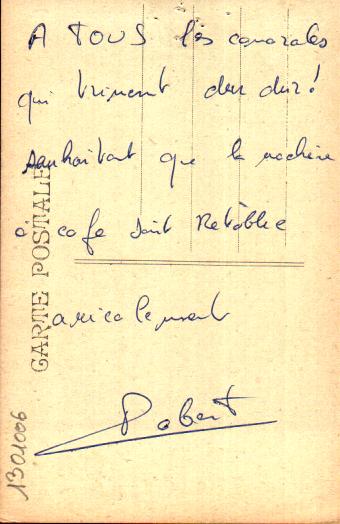 A TOUS les camarades
qui triment dur dur!
souhaitant que la machine
à café soit Rétablie
amicalement
Robert
CARTE POSTALE
1301006